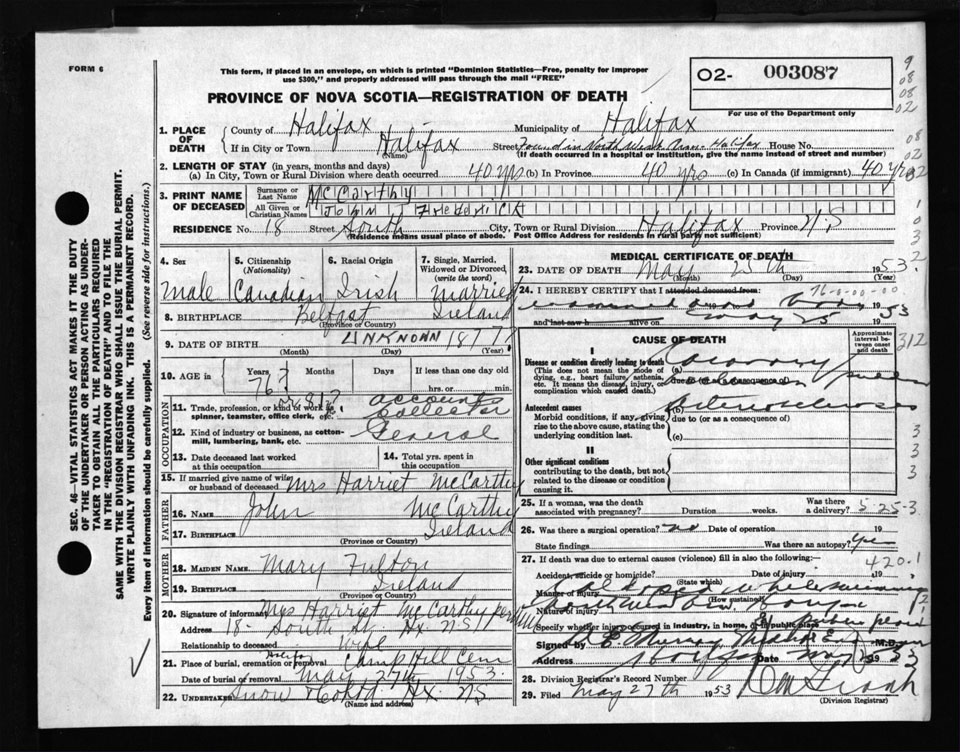 FORM 6
This form, if placed in an envelope, on which is printed "Dominion Statistics—Free, penalty for improper
use $300," and properly addressed will pass through the mail "FREE"
O2- 003087
For use of the Department only
PROVINCE OF NOVA SCOTIA—REGISTRATION OF DEATH
1. PLACE OF DEATH
County of Halifax Municipality of Halifax
If in City or Town Halifax Street Found in North West Arm- Halifax House No.
(Name) (If death occurred in a hospital or institution, give the name instead of street and number)
2. LENGTH OF STAY (in years, months and days)
(a) In City, Town or Rural Division where death occurred 40 yrs (b) In Province 40 yrs (c) In Canada (if immigrant) 40 yrs
3. PRINT NAME OF DECEASED
Surname or Last Name McCarthy
All Given or Christian Names John Frederick
RESIDENCE No. 18 Street South City, Town or Rural Division Halifax Province N.S
(Residence means usual place of abode. Post Office Address for residents in rural parts not sufficient)
4. Sex
Male
5. Citizenship
(Nationality)
Canadian
6. Racial Origin
Irish
7. Single, Married,
Widowed or Divorced,
(write the word)
Married
8. BIRTHPLACE Belfast Ireland
(Province or Country)
9. DATE OF BIRTH UNKNOWN 1877?
(Month) (Day) (Year)
10. AGE in
Years Months Days If less than one day
76? hrs. or min.
OCCUPATION
11. Trade, profession, or kind of work as
spinner, teamster, office clerk, etc. accounts Collector
12. Kind of industry or business, as cotton-
mill, lumbering, bank, etc. General
13. Date deceased last worked
at this occupation
14. Total yrs. spent in
this occupation
15. If married give name of wife
or husband of deceased Mrs Harriet McCarthy
FATHER
16. NAME John McCarthy
17. BIRTHPLACE Ireland
(Province or Country)
MOTHER
18. MAIDEN NAME Mary Fulton
19. BIRTHPLACE Ireland
(Province or Country)
20. Signature of informant Mrs Harriet McCarthy per
Address 18- South St. Hx. NS
Relationship to deceased Wife
21. Place of burial, cremation or removal Halifax Camp Hill Cem
Date of burial or removal May 27th 1953.
22. UNDERTAKER Snow Hx. NS.
(Name and address)
MEDICAL CERTIFICATE OF DEATH
23. DATE OF DEATH May 25th 1953.
(Month) (Day) (Year)
24. I HEREBY CERTIFY that I attended deceased from
76-0-00-00
examined dead body 1953
and last saw h alive on May 25
CAUSE OF DEATH
Approximate
interval between
onset
and death
I
Disease or condition directly leading to death
(This does not mean the mode of
dying, e.g., heart failure, asthenia,
etc. It means the disease, injury, or
complication which caused death.)
(a) Coronary
due to (or as a consequence of)
Antecedent causes
Morbid conditions, if any, giving
rise to the above cause, stating the
underlying condition last.
(b) Arteriosclerosis
due to (or as a consequence of)
(c)
II
Other significant conditions
contributing to the death, but not
related to the disease or condition
causing it.
25. If a woman, was the death
associated with pregnancy? Duration weeks. Was there
a delivery? 5 25-3
26. Was there a surgical operation? no Date of operation 19
State findings Was there an autopsy? Yes
27. If death was due to external causes (violence) fill in also the following:— 420.1
Accident, suicide or homicide? Date of injury 19
(State which)
Manner of injury
(How sustained)
Nature of injury
Specify whether injury occurred in industry, in home, or in public place
Signed by Murray M.D.
Address Halifax Date May 1953
28. Division Registrar's Record Number
29. Filed May 27th 1953
(Division Registrar)
SEC. 46—VITAL STATISTICS ACT MAKES IT THE DUTY
OF THE UNDERTAKER OR PERSON ACTING AS UNDER-
TAKER TO OBTAIN ALL THE PARTICULARS REQUIRED
IN THE "REGISTRATION OF DEATH" AND TO FILE THE
SAME WITH THE DIVISION REGISTRAR WHO SHALL ISSUE THE BURIAL PERMIT.
WRITE PLAINLY WITH UNFADING INK. THIS IS A PERMANENT RECORD.
Every item of information should be carefully supplied. (See reverse side for instructions.)